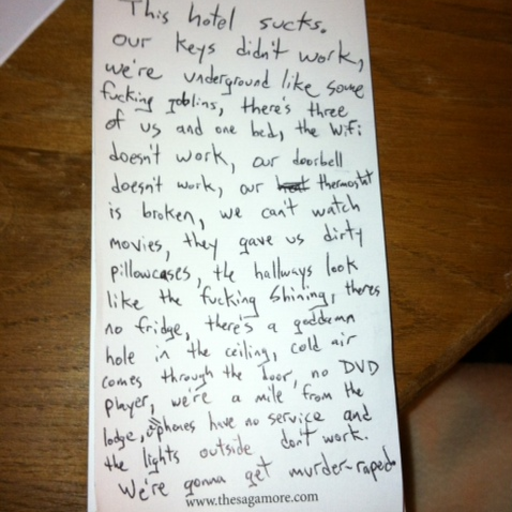 This hotel sucks.
our keys didn't work,
we're underground like some
fucking goblins, there's three
of us and one bed, the WiFi
doesn't work, our doorbell
doesn't work, our heat thermostat
is broken, we can't watch
movies, they gave us dirty
pillowcases, the hallways look
like the fucking Shining, theres
no fridge, there's a goddamn
hole in the ceiling, cold air
comes through the door, no DVD
player, we're a mile from the
lodge, phones have no service and
the lights outside don't work.
We're gonna get murder-raped
www.thesagamore.com